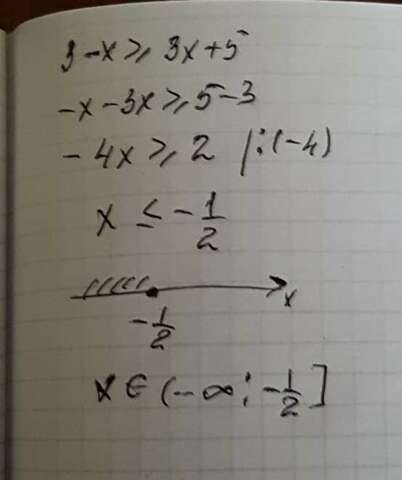 3-x ⩾ 3x+5
-x-3x ⩾ 5-3
-4x ⩾ 2 |:(-4)
x ≤ -1/2
x
-1/2
x ∈ (-∞; -1/2]